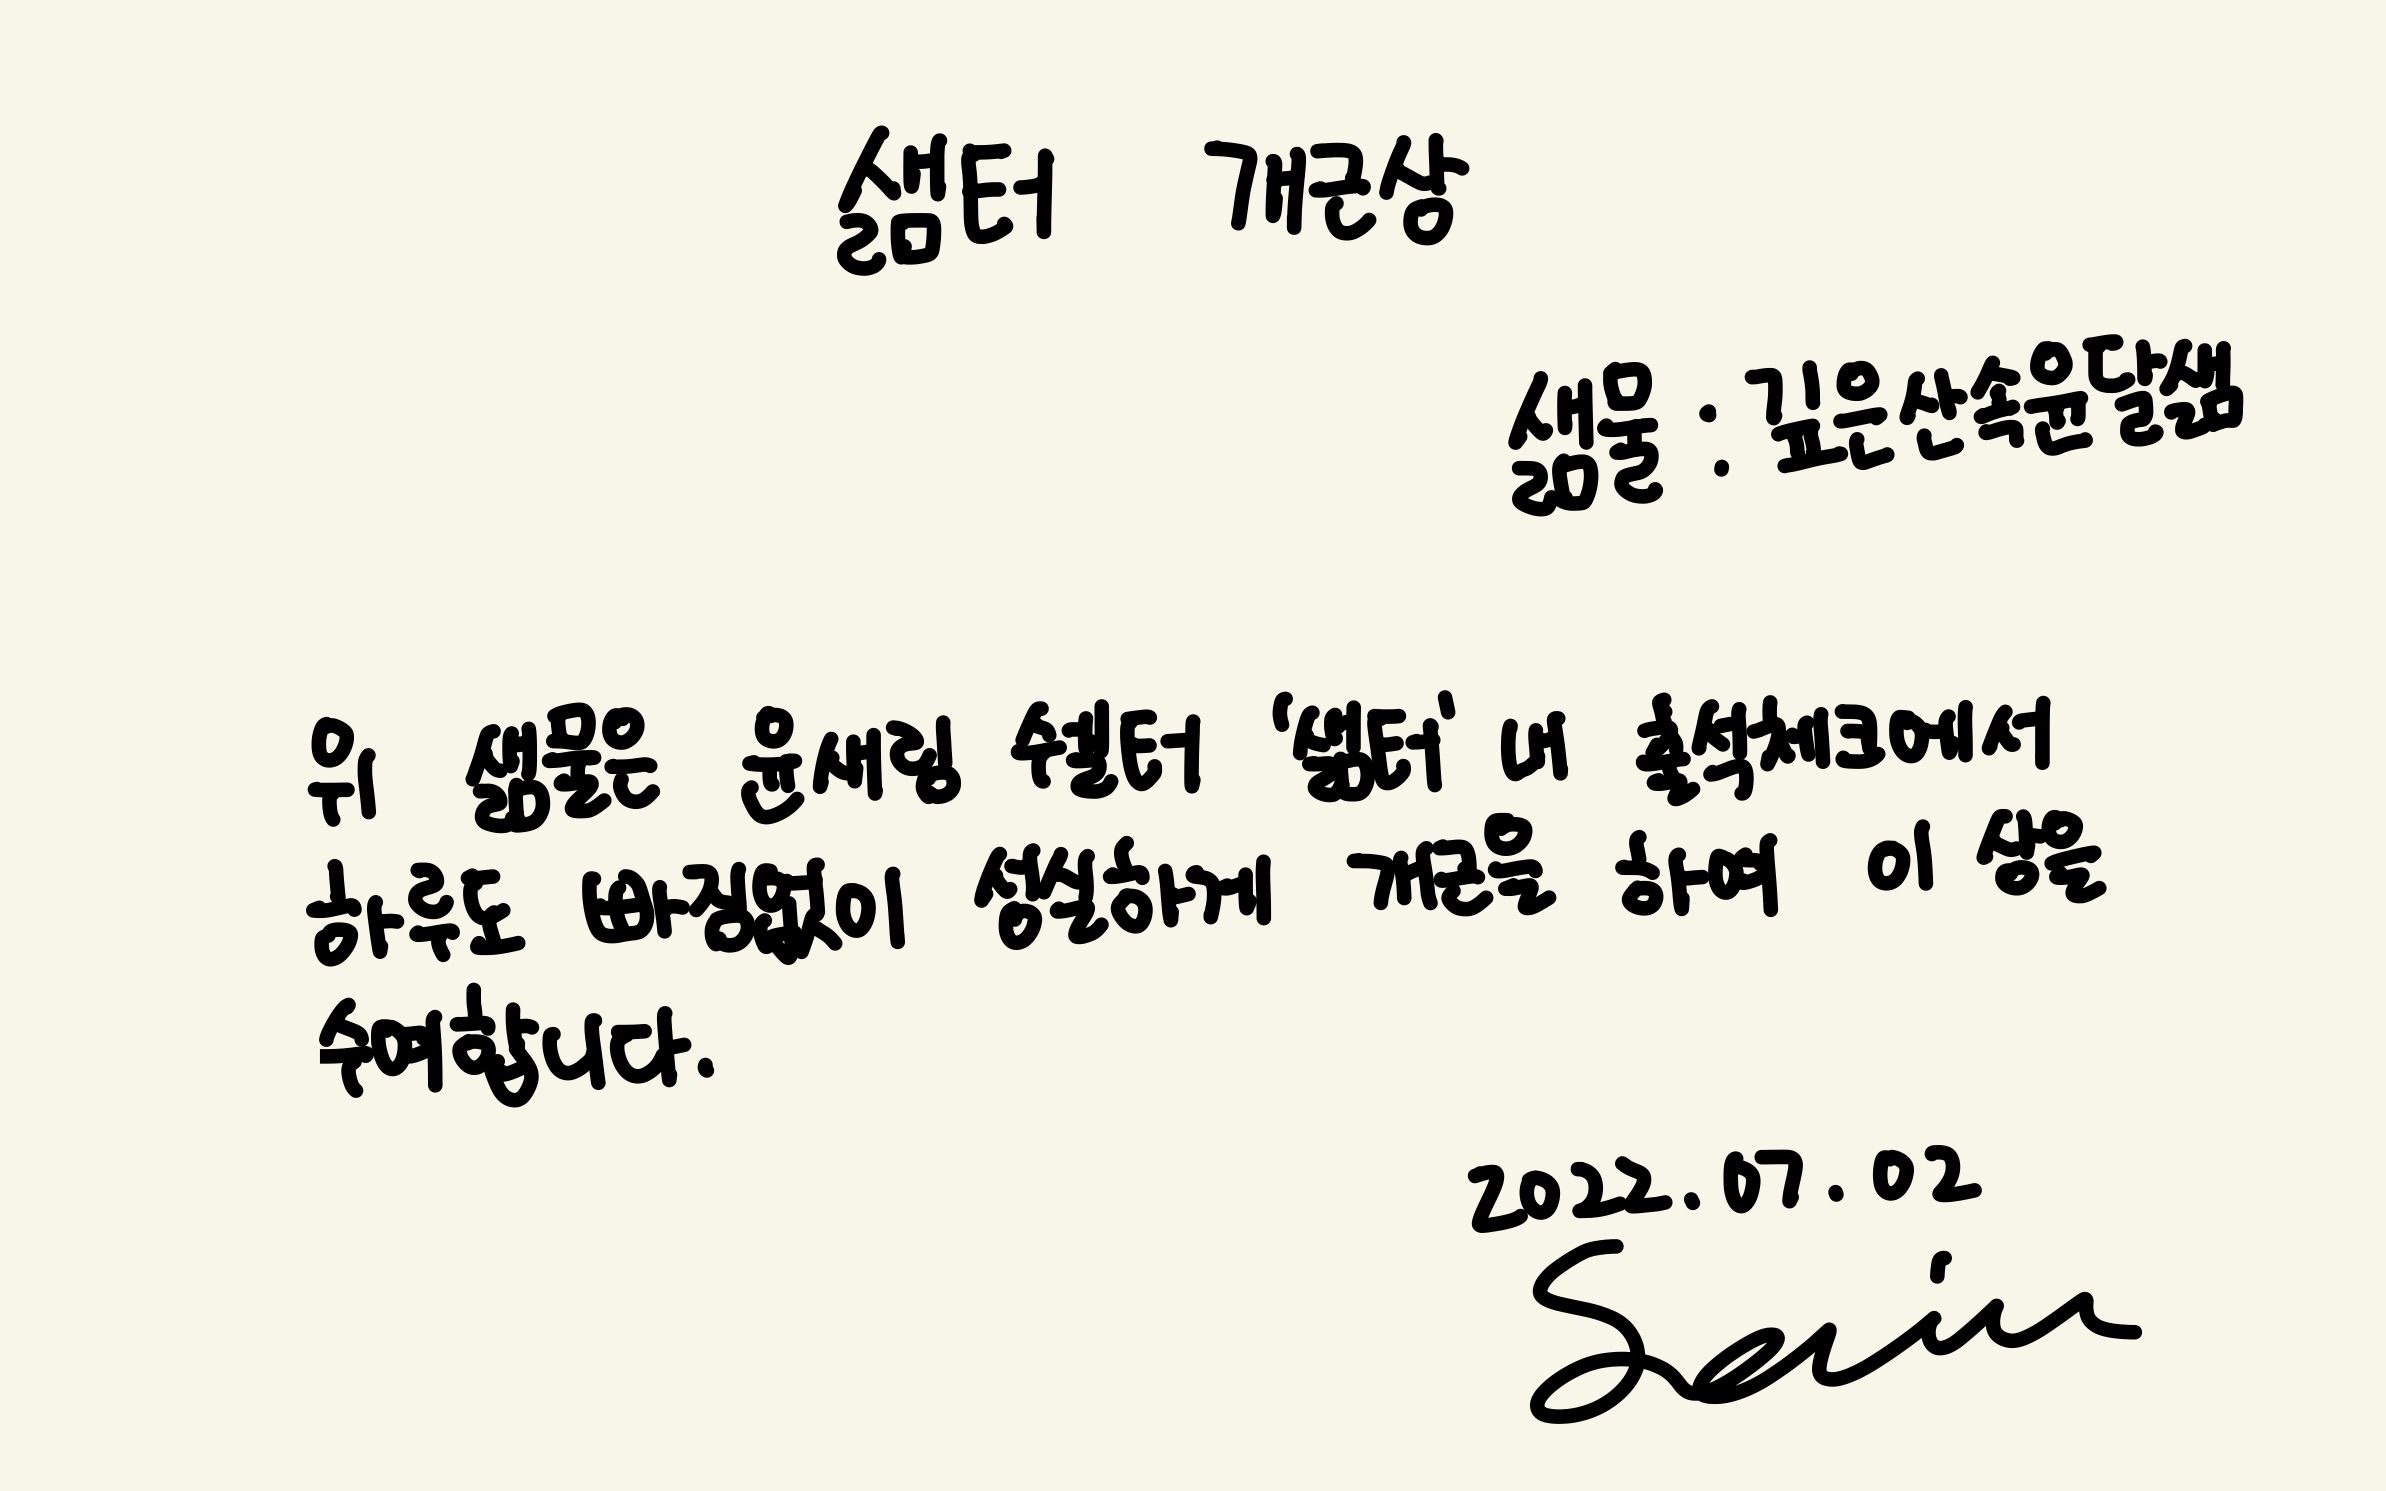 샒터 개근상
샒물 : 깊은산속윤달샘
위 샒물은 윤세인 쉘터 '샒터' 내 출석체크에서
하루도 빠짐없이 성실하게 개근을 하여 이 상을
수여합니다.
2022.07.02
Sein